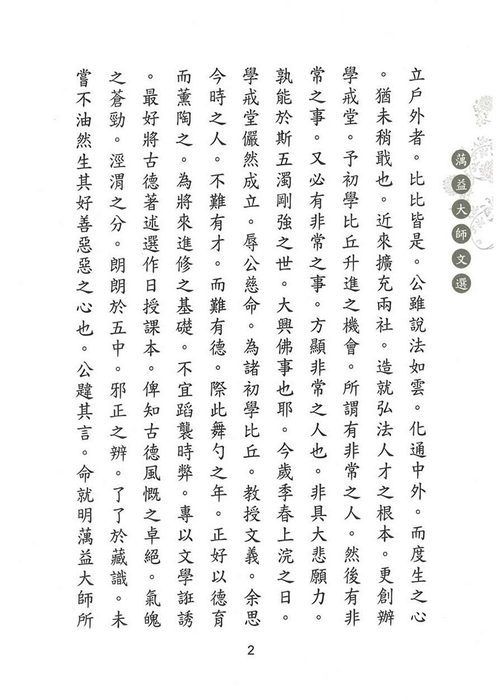 蕅益大師文選
立戶外者。比比皆是。公雖說法如雲。化通中外。而度生之心
。猶未稍戢也。近來擴充兩社。造就弘法人才之根本。更創辦
學戒堂。予初學比丘升進之機會。所謂有非常之人。然後有非
常之事。又必有非常之事。方顯非常之人也。非具大悲願力。
孰能於斯五濁剛強之世。大興佛事也耶。今歲季春上浣之日。
學戒堂儼然成立。辱公慈命。為諸初學比丘。教授文義。余思
今時之人。不難有才。而難有德。際此舞勺之年。正好以德育
而薰陶之。為將來進修之基礎。不宜蹈襲時弊。專以文學誑誘
。最好將古德著述選作日授課本。俾知古德風慨之卓絕。氣魄
之蒼勁。涇渭之分。朗朗於五中。邪正之辨。了了於藏識。未
嘗不油然生其好善惡惡之心也。公韙其言。命就明蕅益大師所
2